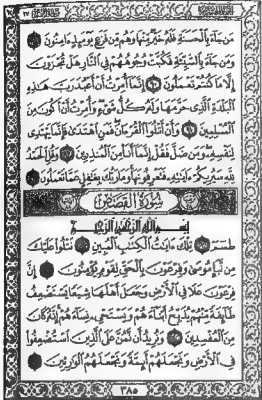 مَن جَآءَ بِٱلْحَسَنَةِ فَلَهُۥ خَيْرٌ مِّنْهَا وَهُم مِّن فَزَعٍ يَوْمَئِذٍ ءَامِنُونَ ٨٩
وَمَن جَآءَ بِٱلسَّيِّئَةِ فَكُبَّتْ وُجُوهُهُمْ فِى ٱلنَّارِ هَلْ تُجْزَوْنَ
إِلَّا مَا كُنتُمْ تَعْمَلُونَ ٩٠ إِنَّمَآ أُمِرْتُ أَنْ أَعْبُدَ رَبَّ هَٰذِهِ
ٱلْبَلْدَةِ ٱلَّذِى حَرَّمَهَا وَلَهُۥ كُلُّ شَىْءٍ وَأُمِرْتُ أَنْ أَكُونَ مِنَ
ٱلْمُسْلِمِينَ ٩١ وَأَنْ أَتْلُوَا۟ ٱلْقُرْءَانَ فَمَنِ ٱهْتَدَىٰ فَإِنَّمَا يَهْتَدِى
لِنَفْسِهِۦ وَمَن ضَلَّ فَقُلْ إِنَّمَآ أَنَا۠ مِنَ ٱلْمُنذِرِينَ ٩٢ وَقُلِ ٱلْحَمْدُ
لِلَّهِ سَيُرِيكُمْ ءَايَٰتِهِۦ فَتَعْرِفُونَهَا وَمَا رَبُّكَ بِغَٰفِلٍ عَمَّا تَعْمَلُونَ ٩٣
سُورَةُ ٱلْقَصَصِ
بِسْمِ ٱللَّهِ ٱلرَّحْمَٰنِ ٱلرَّحِيمِ
طسٓمٓ ١ تِلْكَ ءَايَٰتُ ٱلْكِتَٰبِ ٱلْمُبِينِ ٢ نَتْلُوا۟ عَلَيْكَ
مِن نَّبَإِ مُوسَىٰ وَفِرْعَوْنَ بِٱلْحَقِّ لِقَوْمٍ يُؤْمِنُونَ ٣ إِنَّ
فِرْعَوْنَ عَلَا فِى ٱلْأَرْضِ وَجَعَلَ أَهْلَهَا شِيَعًا يَسْتَضْعِفُ
طَآئِفَةً مِّنْهُمْ يُذَبِّحُ أَبْنَآءَهُمْ وَيَسْتَحْىِۦ نِسَآءَهُمْ إِنَّهُۥ كَانَ
مِنَ ٱلْمُفْسِدِينَ ٤ وَنُرِيدُ أَن نَّمُنَّ عَلَى ٱلَّذِينَ ٱسْتُضْعِفُوا۟
فِى ٱلْأَرْضِ وَنَجْعَلَهُمْ أَئِمَّةً وَنَجْعَلَهُمُ ٱلْوَٰرِثِينَ ٥
٣٨٥